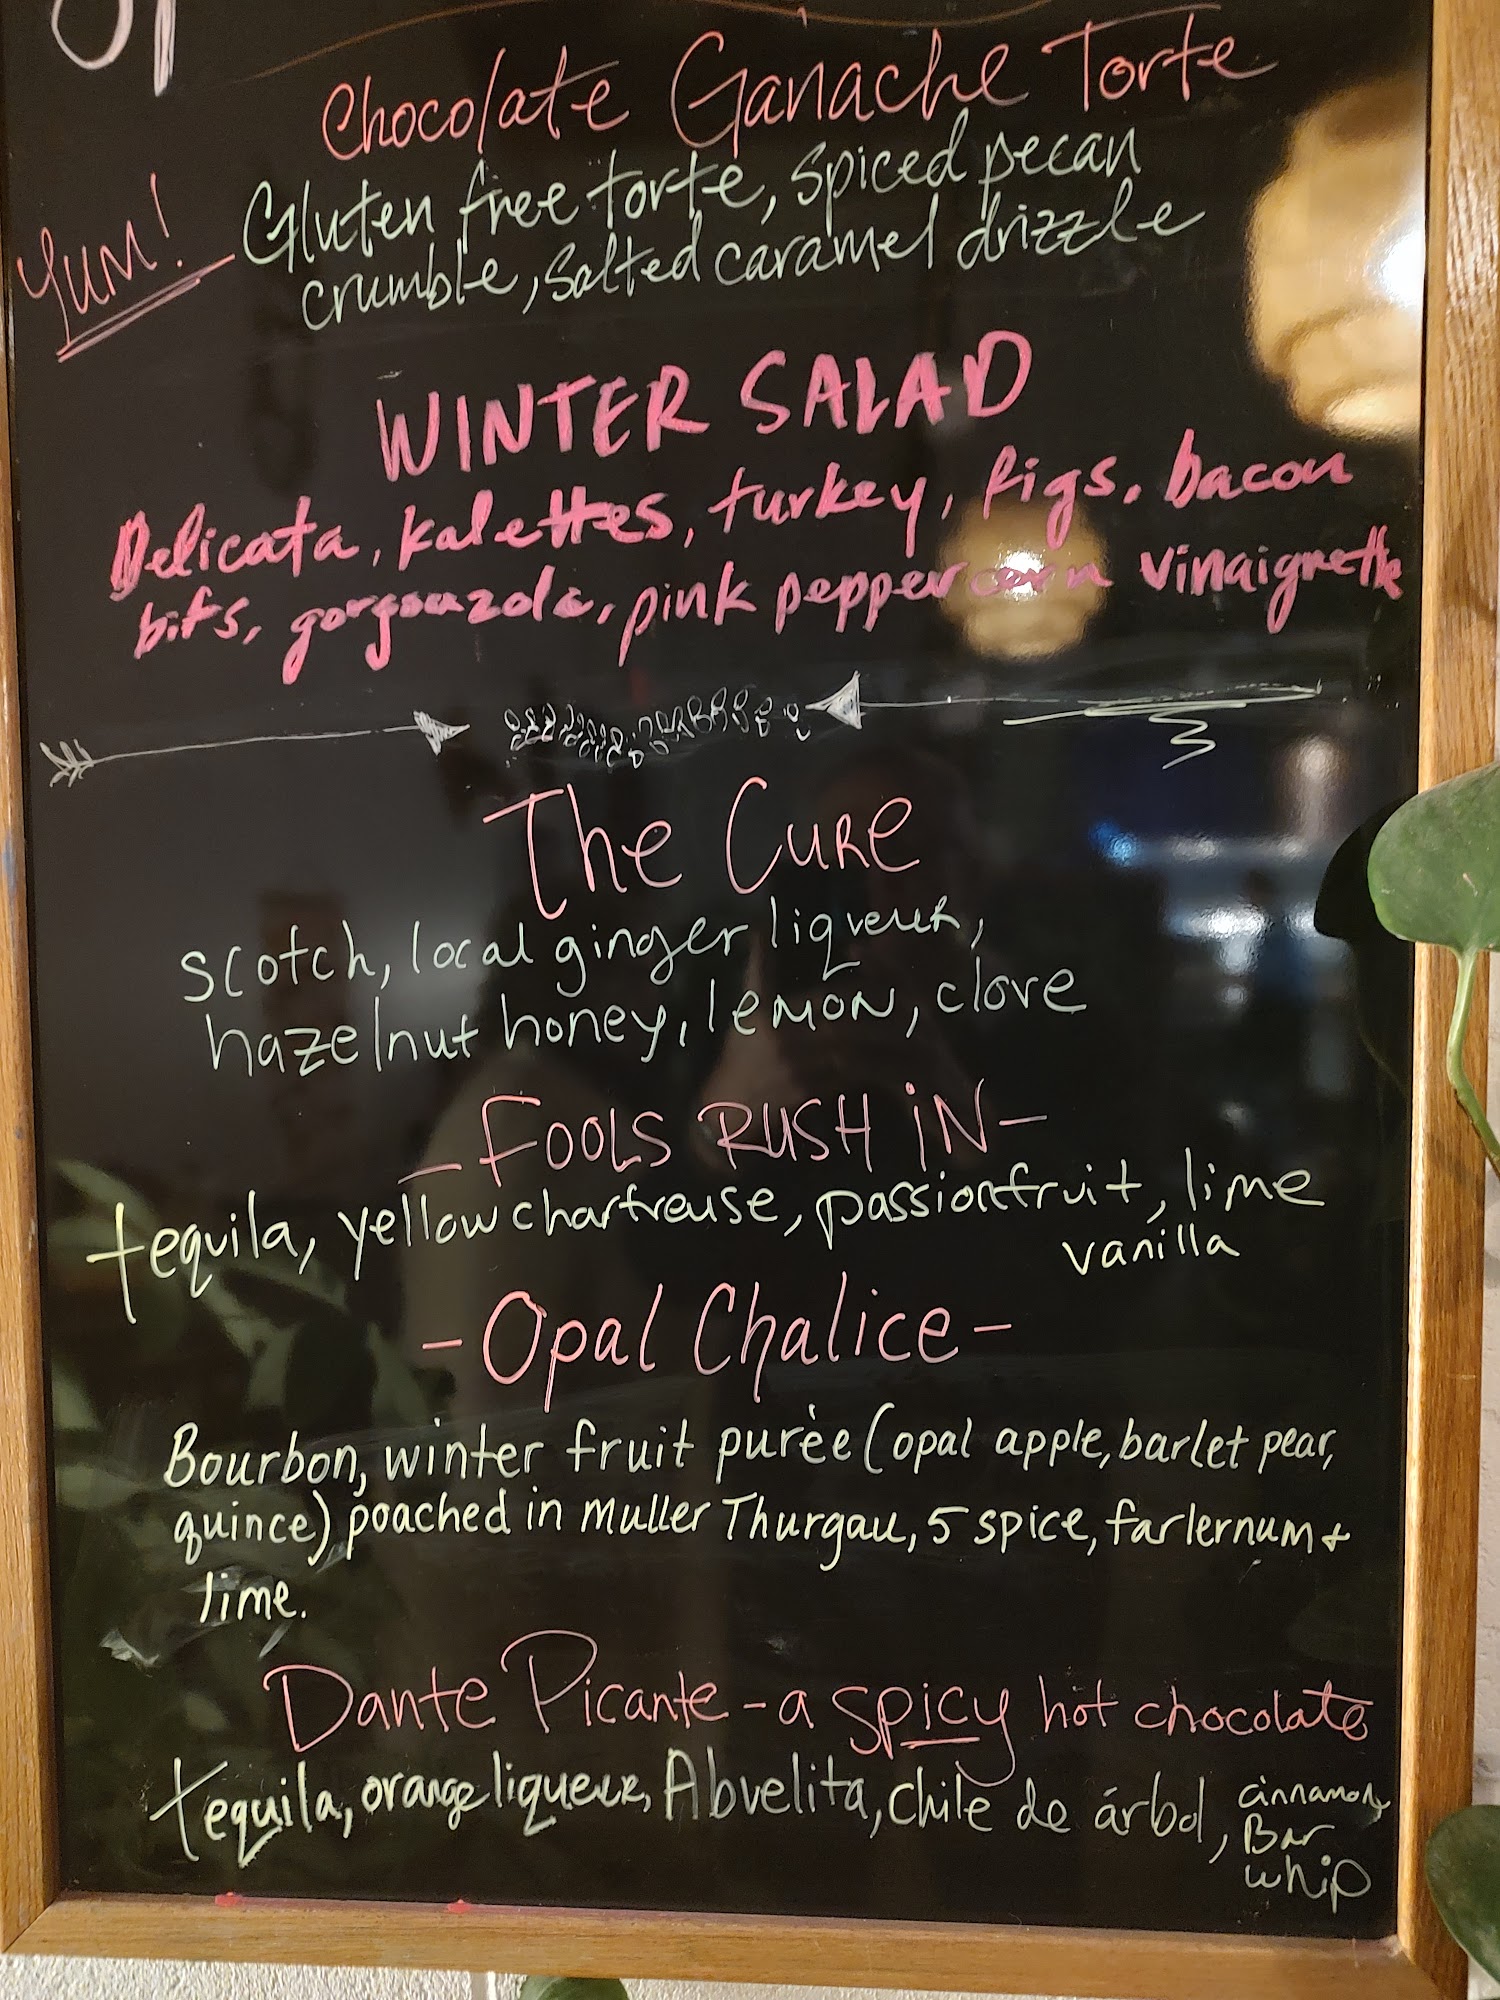 Chocolate Ganache Torte
Yum!
Gluten free torte, spiced pecan
crumble, salted caramel drizzle
WINTER SALAD
Delicata, kalettes, turkey, figs, bacon
bits, gorgonzola, pink peppercorn vinaigrette
The Cure
scotch, local ginger liqueur,
hazelnut honey, lemon, clove
- FOOLS RUSH IN -
tequila, yellow chartreuse, passionfruit, lime
vanilla
- Opal Chalice -
Bourbon, winter fruit purèe (opal apple, barlet pear,
quince) poached in Muller Thurgau, 5 spice, farlernum +
lime.
Dante Picante - a spicy hot chocolate
tequila, orange liqueur, Abuelita, chile de árbol, cinnamon,
Bar
whip